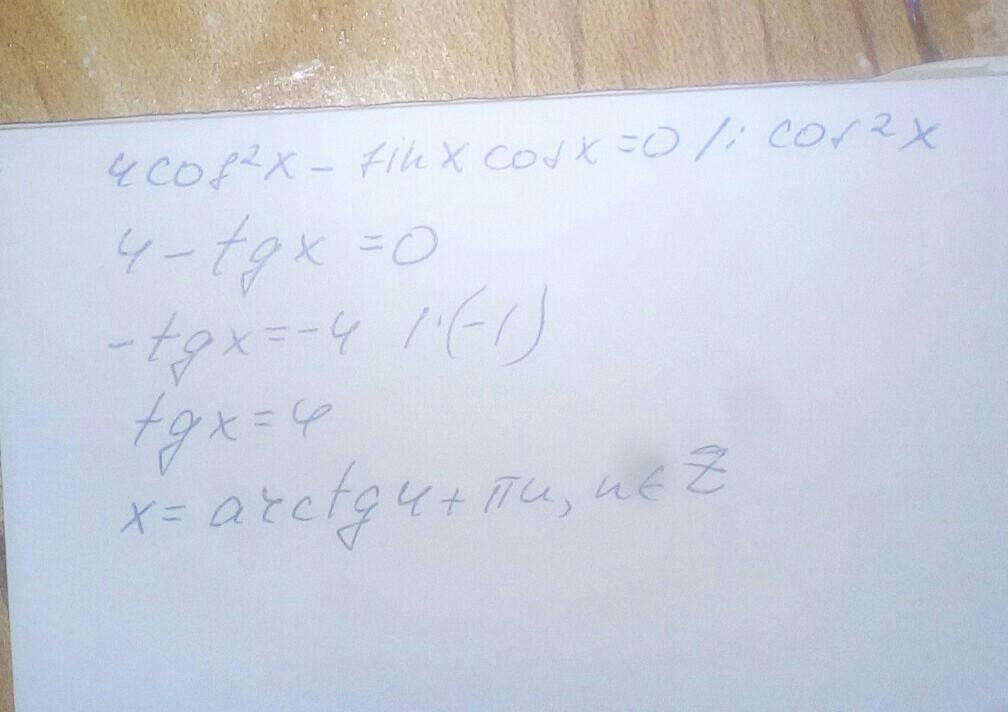 4cos²x - sinx cosx = 0 /: cos²x
4 - tgx = 0
-tgx = -4 /·(-1)
tgx = 4
x = arctg4 + πn, n ∈ Z